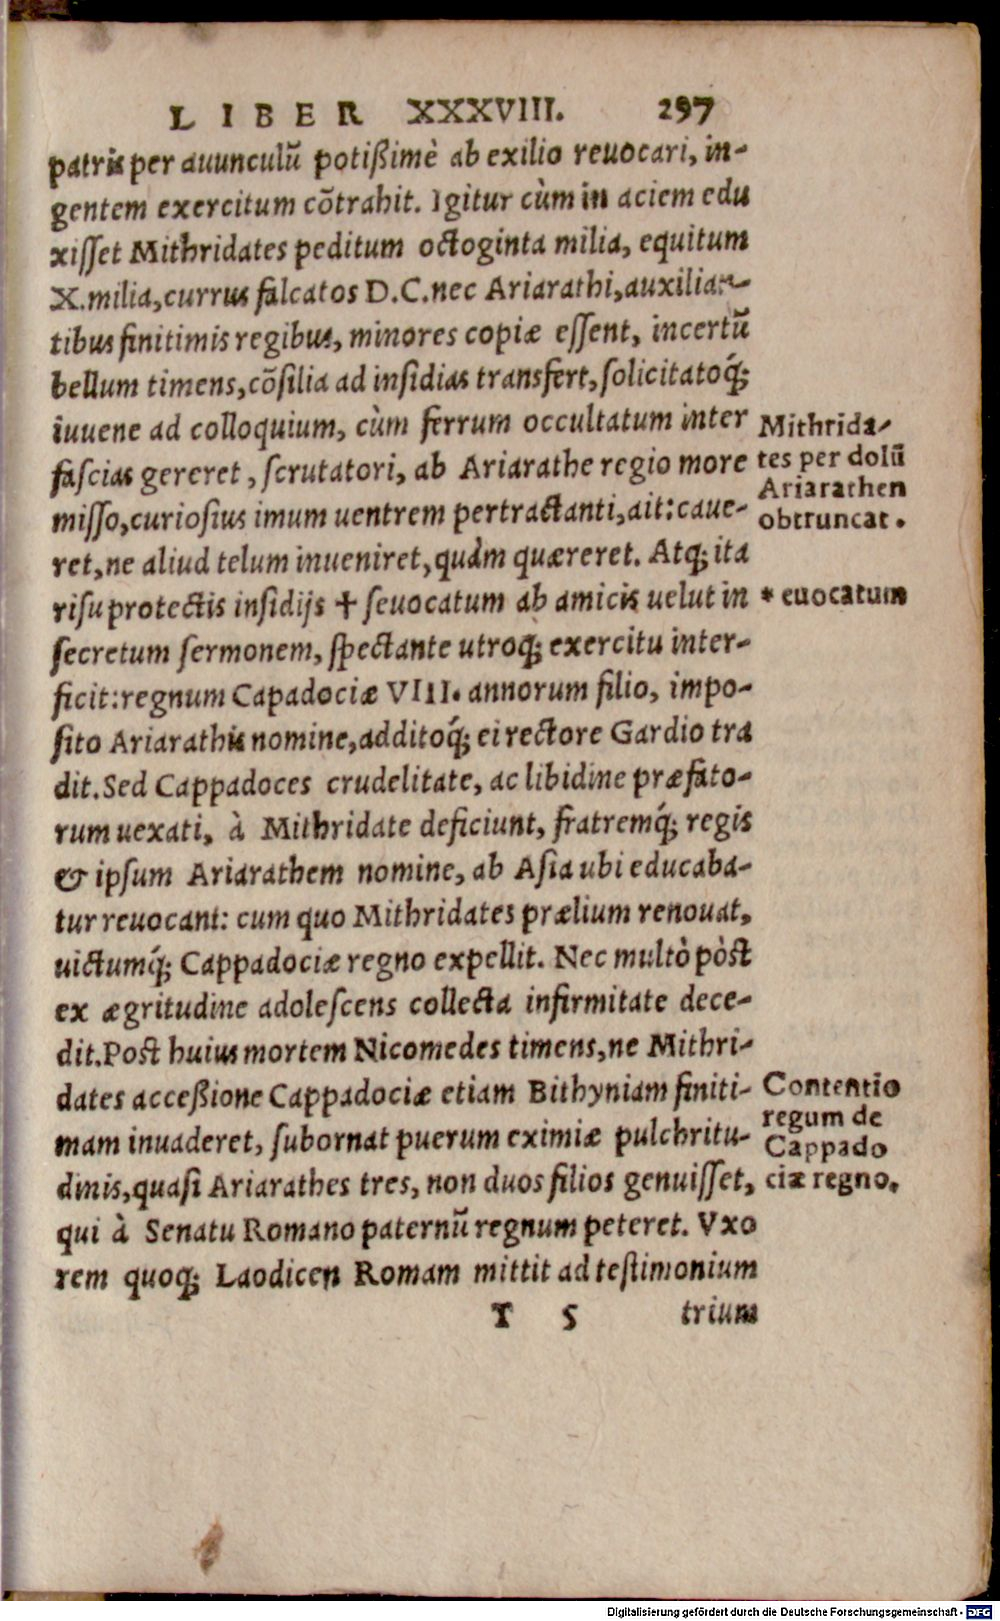 LIBER XXXVIII. 297
patris per auunculũ potißimè ab exilio reuocari, in-
gentem exercitum cõtrahit. Igitur cùm in aciem edu
xisset Mithridates peditum octoginta milia, equitum
X. milia, currus falcatos D.C. nec Ariarathi, auxilian-
tibus finitimis regibus, minores copiæ essent, incertũ
bellum timens, cõsilia ad insidias transfert, solicitatoq́;
iuuene ad colloquium, cùm ferrum occultatum inter
fascias gereret, scrutatori, ab Ariarathe regio more
misso, curiosius imum uentrem pertractanti, ait: caue-
ret, ne aliud telum inueniret, quàm quæreret. Atq; ita
risu protectis insidijs † seuocatum ab amicis uelut in
secretum sermonem, spectante utroq; exercitu inter-
ficit: regnum Capadociæ VIII. annorum filio, impo-
sito Ariarathis nomine, additoq́; ei rectore Gardio tra
dit. Sed Cappadoces crudelitate, ac libidine præfato-
rum uexati, à Mithridate deficiunt, fratremq́; regis
& ipsum Ariarathem nomine, ab Asia ubi educaba-
tur reuocant: cum quo Mithridates prælium renouat,
uictumq́; Cappadociæ regno expellit. Nec multò pòst
ex ægritudine adolescens collecta infirmitate dece-
dit. Post huius mortem Nicomedes timens, ne Mithri-
dates acceßione Cappadociæ etiam Bithyniam finiti-
mam inuaderet, subornat puerum eximiæ pulchritu-
dinis, quasi Ariarathes tres, non duos filios genuisset,
qui à Senatu Romano paternũ regnum peteret. Vxo
rem quoq; Laodicen Romam mittit ad testimonium
T 5 trium
Mithrida-
tes per dolũ
Ariarathen
obtruncat.
* euocatum
Contentio
regum de
Cappado
ciæ regno.
Digitalisierung gefördert durch die Deutsche Forschungsgemeinschaft - DFG